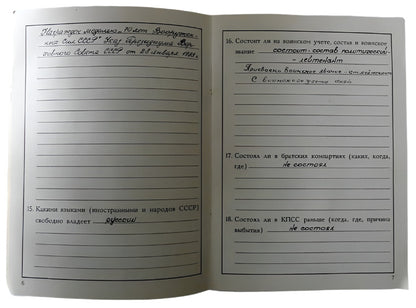 Награжден медалью „70 лет Вооружен-
ных Сил СССР" Указ Президиума Вер-
ховного Совета СССР от 28 января 1988г.
15. Какими языками (иностранными и народов СССР)
свободно владеет русским
6
16. Состоит ли на воинском учете, состав и воинское
звание состоит. состав политический
- лейтенант
Присвоено воинское звание
С
17. Состоял ли в братских компартиях (каких, когда,
где) не состоял
18. Состоял ли в КПСС раньше (когда, где, причина
выбытия) не состоял
7